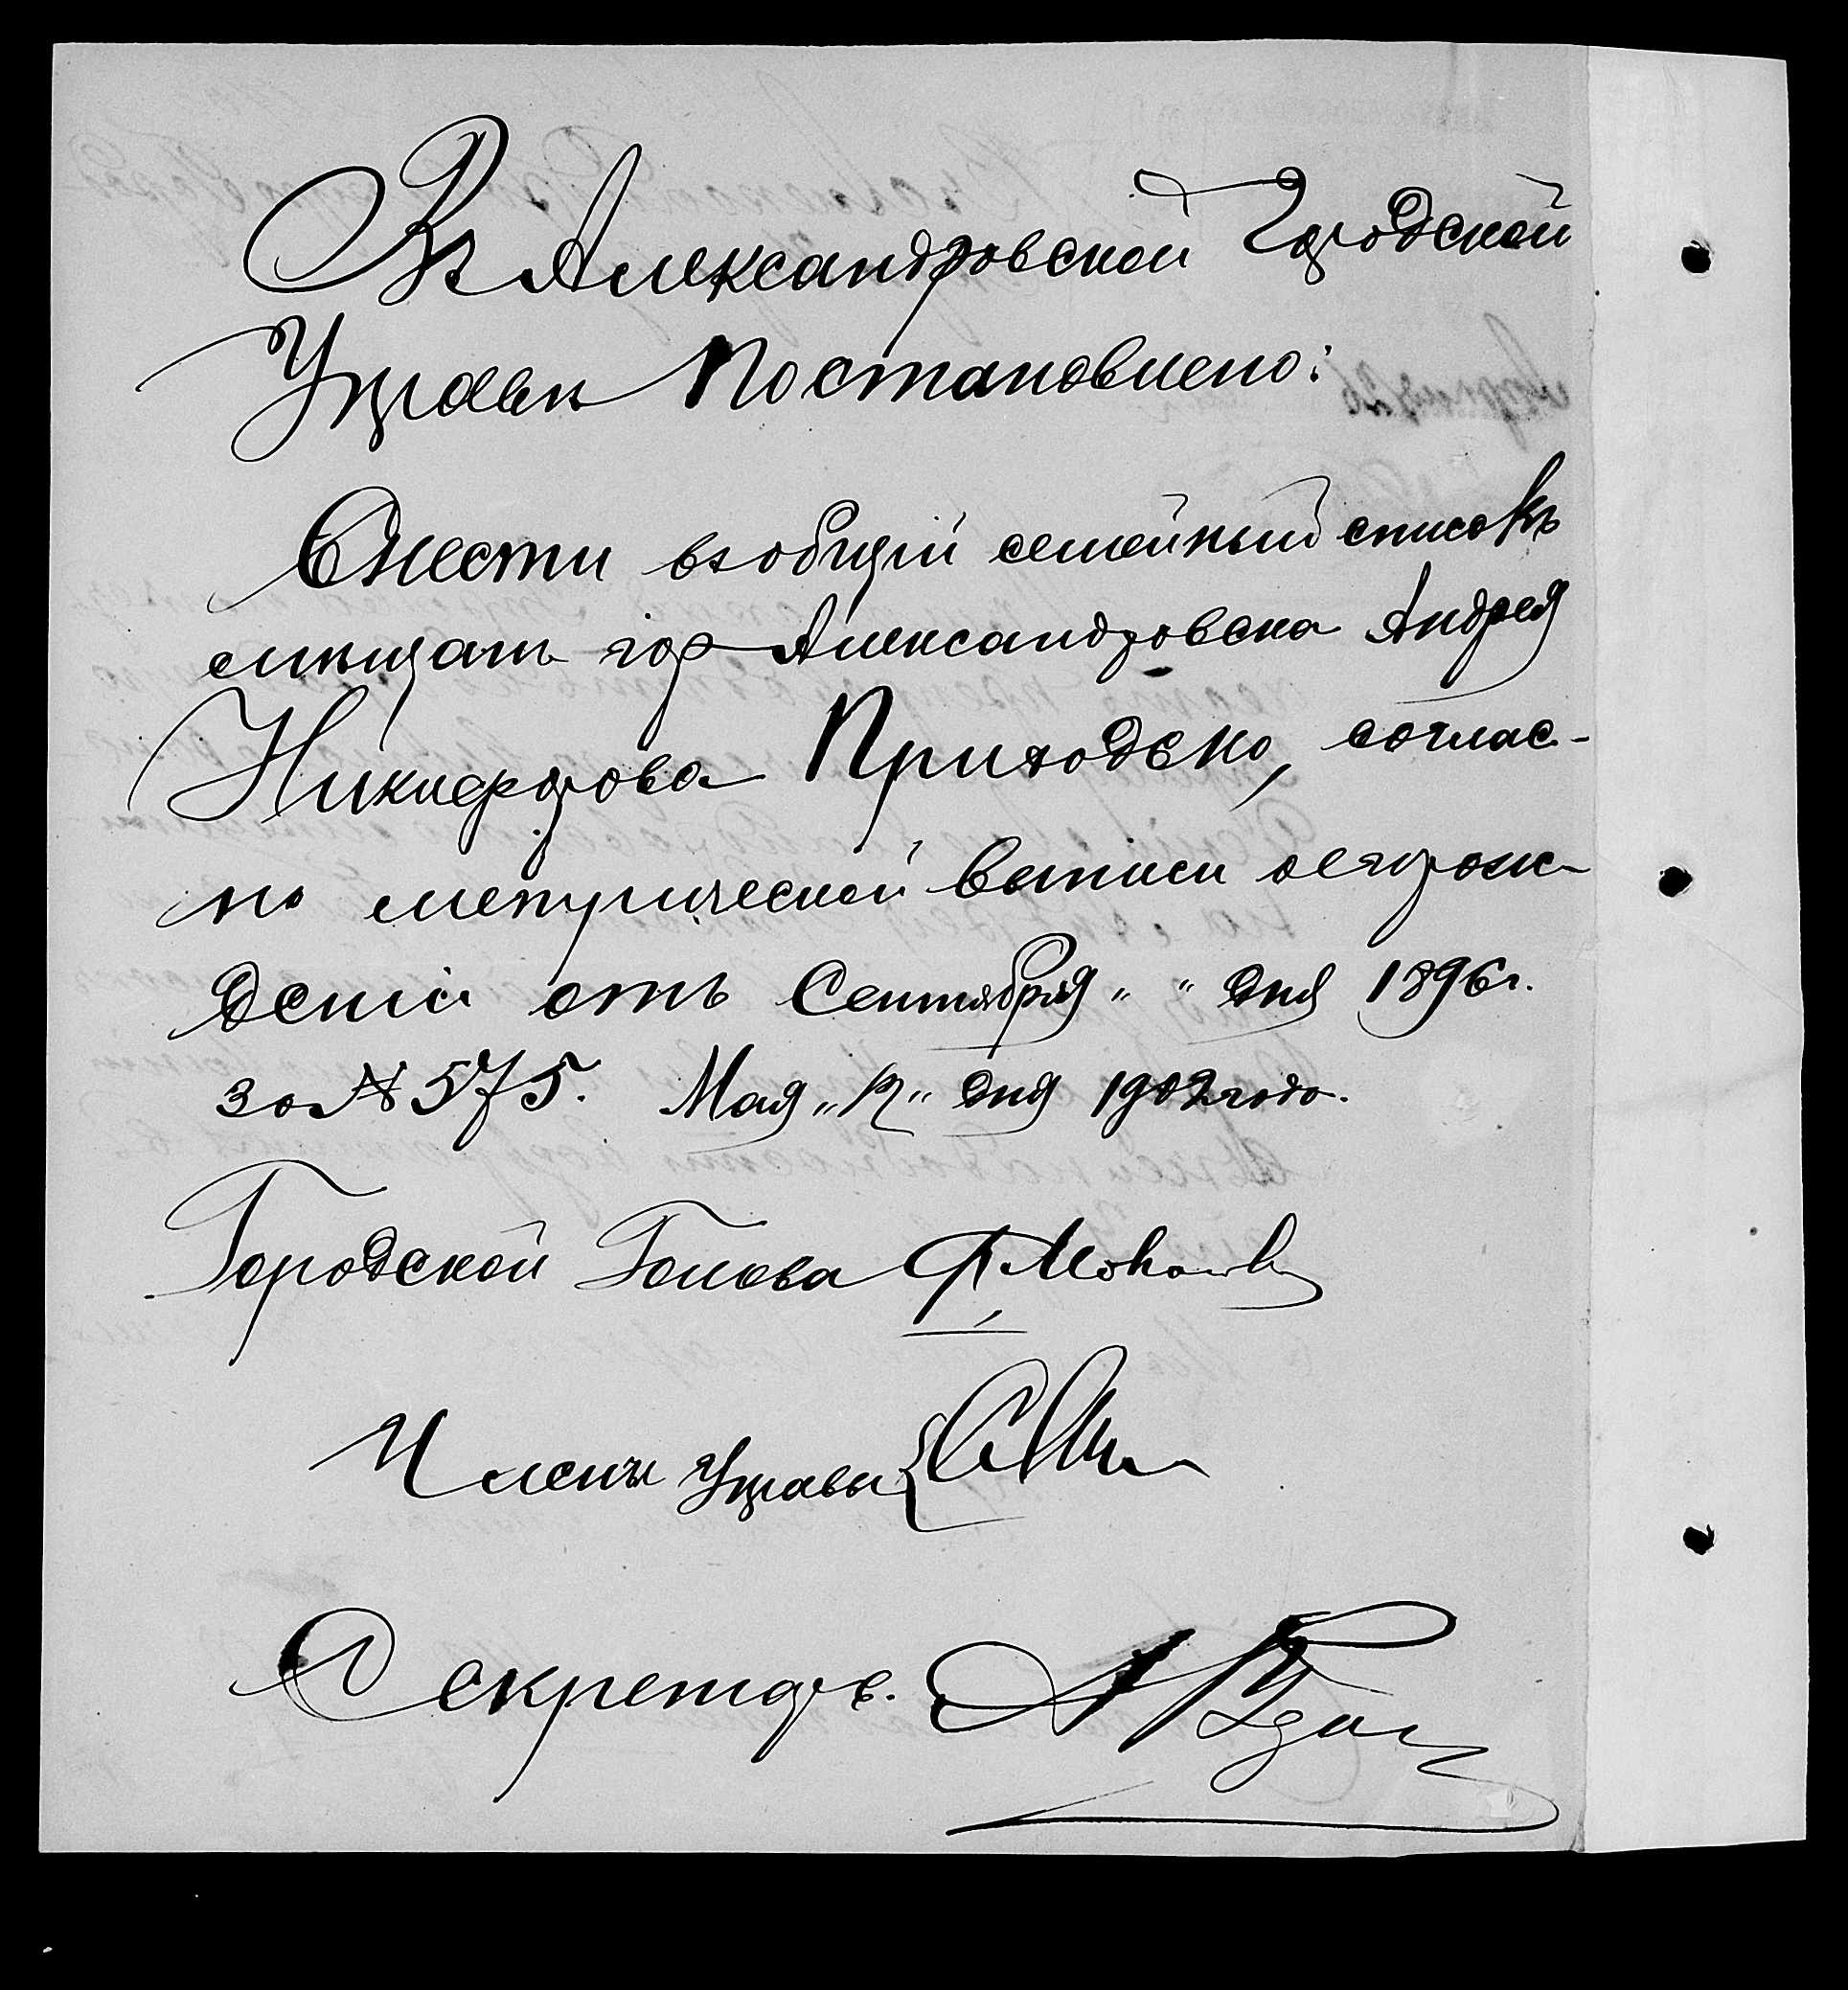 Въ Александровской Городской
Управѣ Постановлено:
Внести въ общій семейный списокъ
мѣщанъ гор Александровска Андрея
Никифорова Приходько, соглас-
но метрической выписи о его рож-
деніи отъ Сентября „ " дня 1896 г.
за № 575. Мая „ " дня 1902 года.
Городской Голова Ф
Члены Управы
Секретарь. А